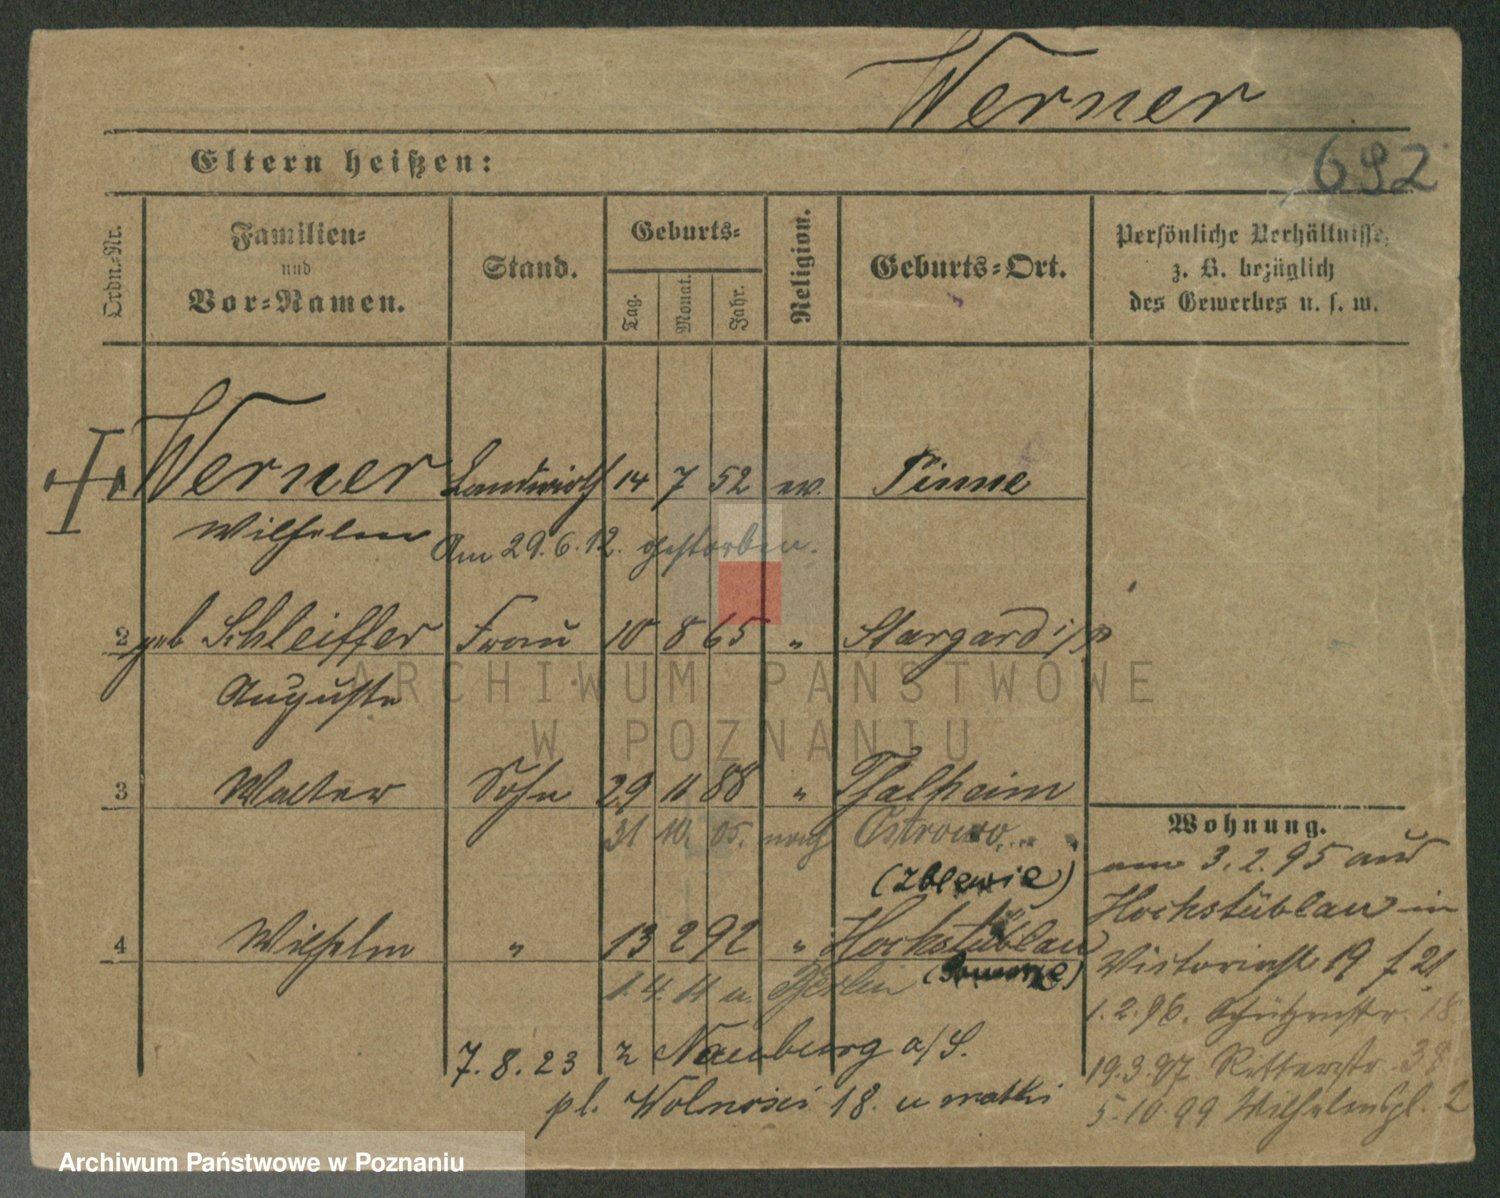 Werner
Eltern heißen:
692
Ordn.-Nr.
Familien-
und
Vor-Namen.
Stand.
Geburts-
Tag.
Monat.
Jahr.
Religion.
Geburts-Ort.
Persönliche Verhältnisse,
z. B. bezüglich
des Gewerbes u. s. w.
1 Werner Landwirth 14 7 52 ev. Pinne
Wilhelm Am 29.6.12. gestorben.
2 geb Schleiffer Frau 10 8 65 " Stargard i/P
Auguste
3 Walter Sohn 29 11 88 " Thalheim
31 10. 05. nach Ostrowo
(Zblewie)
4 Wilhelm " 13 2 92 " Hochstüblau
1. 4. 11 n. Berlin (Pomorze)
7. 8. 23 z Naumburg a/S.
pl. Wolności 18. u matki
Wohnung.
am 3. 2. 95 aus
Hochstüblau in
Victoriastr 19
1. 2. 96. Schützenstr. 18
19.3.97 Ritterstr. 38
5.10.99 Wilhelmspl. 2
ARCHIWUM PAŃSTWOWE
W POZNANIU
Archiwum Państwowe w Poznaniu